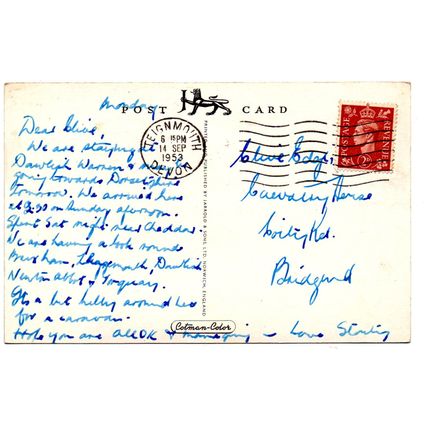 POST CARD
TEIGNMOUTH
6 15PM
14 SEP
1953
DEVON
POSTAGE
REVENUE
PRINTED & PUBLISHED BY JARROLD & SONS, LTD. NORWICH, ENGLAND
Cotman-Color
Monday
Dear Clive,
We are staying at
Dawlish Warren &
going towards Dorsetshire
tomorrow. We arrived here
at 3.30 on Sunday afternoon.
Spent Sat night near Cheddar.
We are having a look round
Brixham, Teignmouth, Dawlish
Newton Abbot & Torquay.
Its a bit hilly around here
for a caravan.
Hope you are all OK & managing — Love
Clive Edge,
House
Rd.
Bridgend